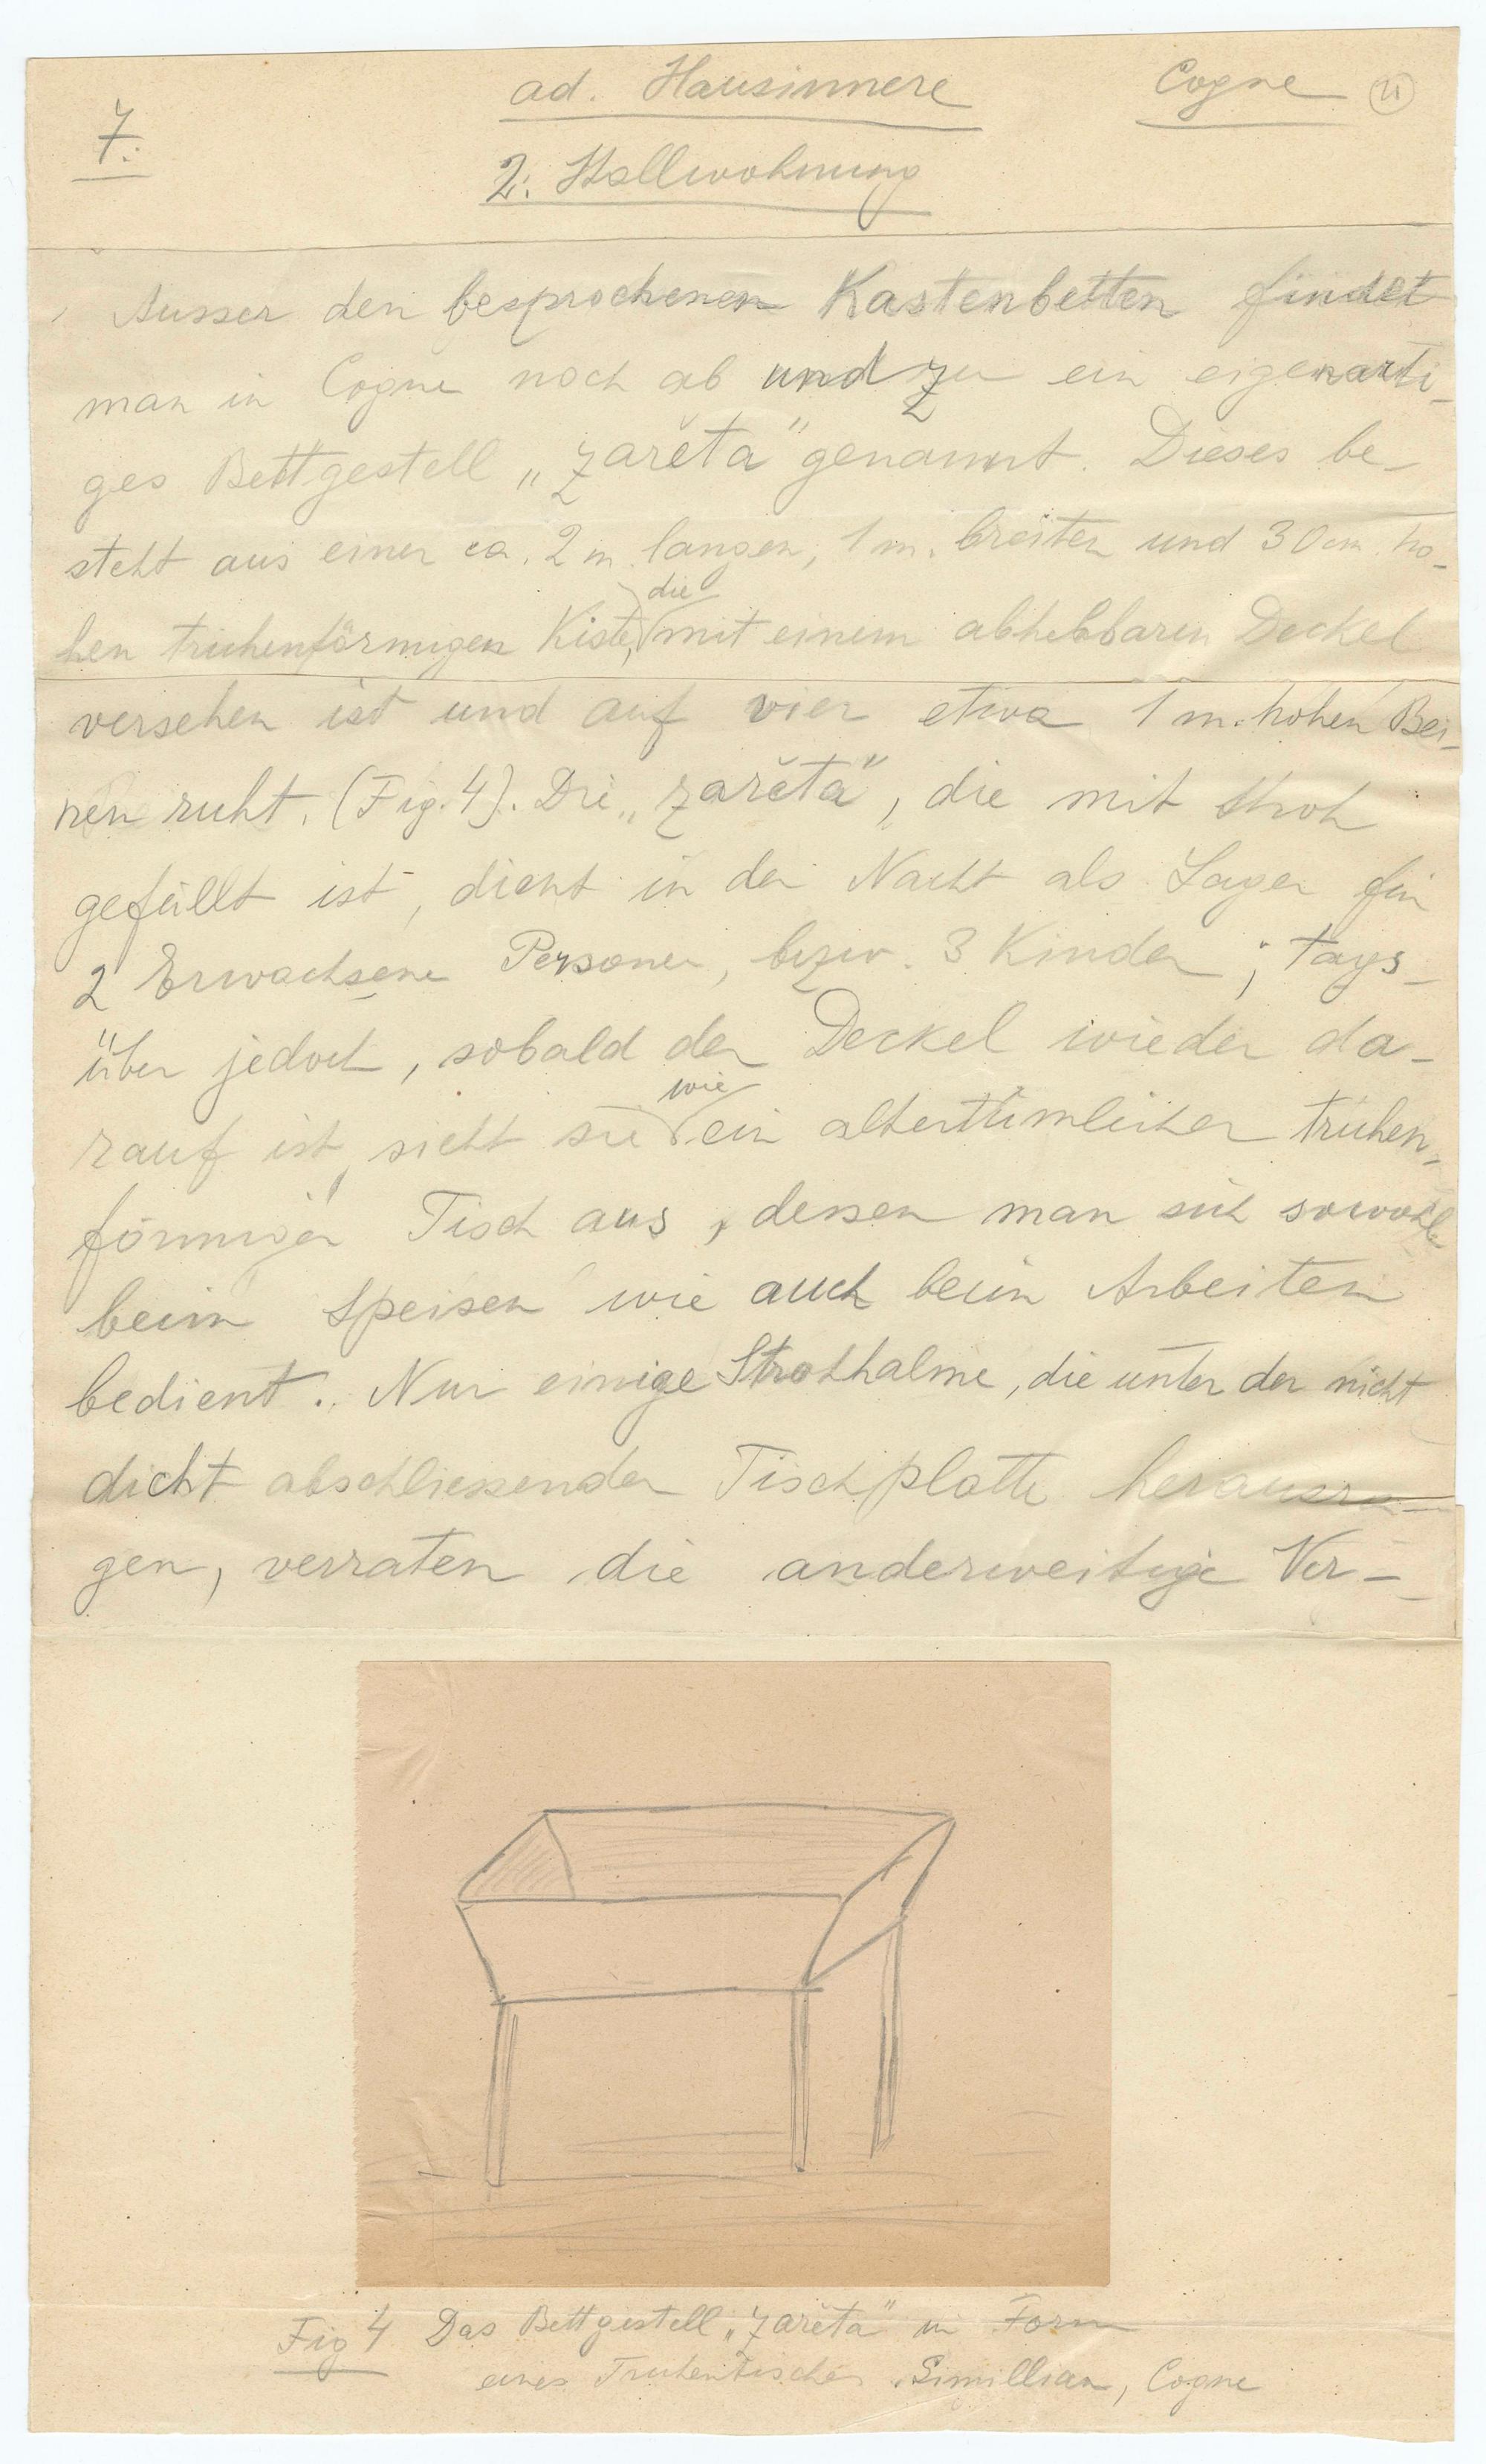 ad. Hausinnere
Cogne
7.
2. Stallwohnung
Ausser den besprochenen Kastenbetten findet
man in Cogne noch ab und zu ein eigenarti-
ges Bettgestell „zarĕta" genannt. Dieses be-
steht aus einer ca. 2 m. langen, 1 m. breiten und 30 cm. ho-
die
hen truhenförmigen Kiste, mit einem abhebbaren Deckel
versehen ist und auf vier etwa 1 m. hohen Bei-
nen ruht. (Fig. 4). Die „zarĕta", die mit Stroh
gefüllt ist, dient in der Nacht als Lager für
2 Erwachsene Personen, bezw. 3 Kinder; tags-
über jedoch, sobald der Deckel wieder da-
wie
rauf ist, sieht sie ein altertümlicher truhen-
förmiger Tisch aus, dessen man sich sowohl
beim Speisen wie auch beim Arbeiten
bedient. Nur einige Strohhalme, die unter der nicht
dicht abschliessender Tischplatte herausra-
gen, verraten die anderweitige Ver-
Fig 4 Das Bettgestell „zarĕta" in Form
eines Truhentisches. Gimillian, Cogne